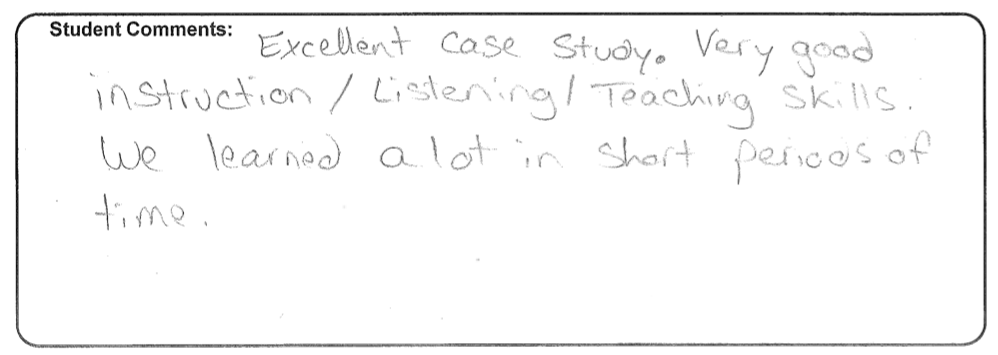 Student Comments: Excellent case study. Very good
instruction / Listening / Teaching skills.
We learned a lot in short periods of
time.